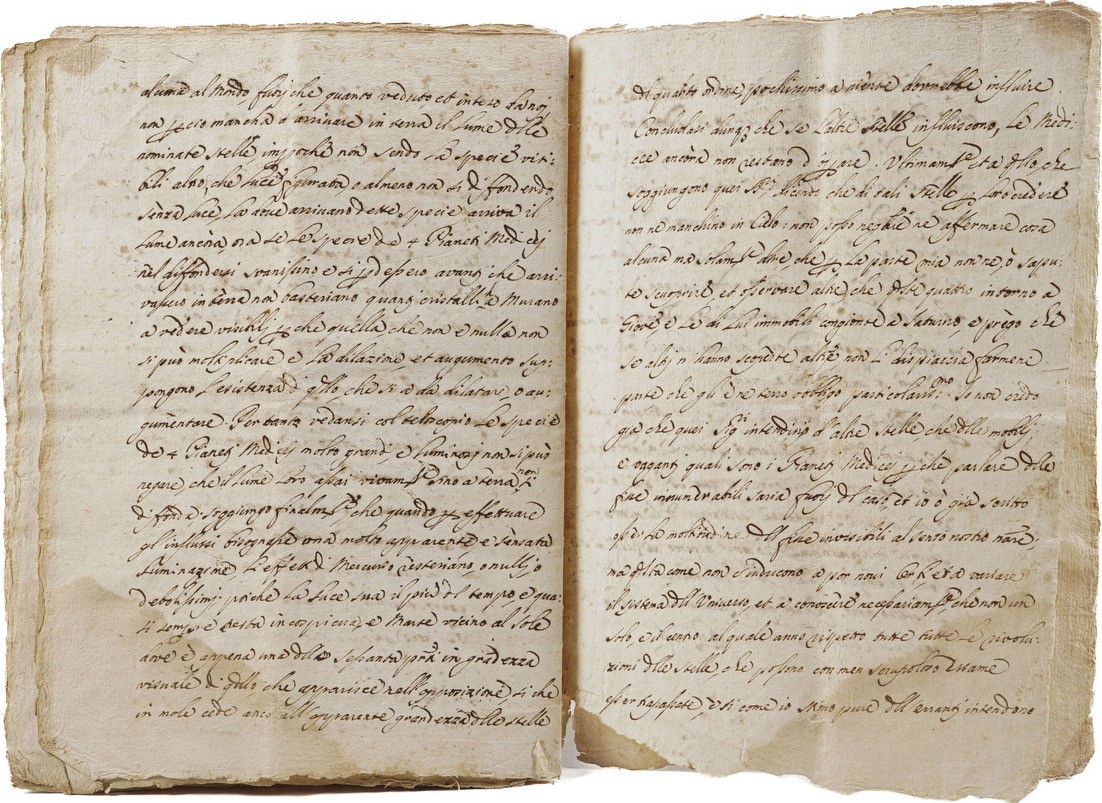 al mondo fuori che quanto veduto et inteso da noi
non p ciò mancha d'arrivare in terra il lume delle
nominate stelle impoche non sendo le specie visi:
bili altro, che luce figurata o almeno non si difondendo
senza luce, la dove arrivano dette specie arriva il
lume ancora, ora se le specie de 4 Pianeti Medicej
nel diffondersi svanissino e si pdessero avanti che arri:
vassero in terra non basteriano quanti cristalli à Murano
a vedere visibilj p che quella che non è nulla non
si può moltiplicare e la dilazine, et augumento sup:
pongono l'esistenza di qllo che si à da dilatare, o au:
gumentare. Pertanto vedansi col telescopio le specie
de 4 Pianeti Medicej molto grandi, e luminosi non si può
negare, che il lume loro assai vivamte sino a terra non si
difonda: soggiungo finalmte che quando p effettuare
gl'influssi bisognasse una molto apparente e sensata
luminazine l'effetti di Mercurio resteriano, o nullj, o
debolissimj poiche la luce sua il più dl tempo, è qua:
si sempre resta incospicua, e Marte vicino al sole
dove è appena una delle sessanta prti in grandezza
visuale di qllo che apparisce nell'opposizione si che
in mole cede anco all'apparente grandezza delle stelle
dl quarto ordine, pochissimo a niente dovrebbe influire.
Concludasi dunq che se l'altre stelle influiscono, le Medi:
cee ancora non restano d'oprare. Ultimamte sta qllo, che
soggiungono quei Sri. dicendo che di tali stelle p loro credere
non ne manchino in Cielo: non posso negare ne affermare cosa
alcuna ma solamte dire, che p la parte mia non ne, ò sapu:
te scuoprire, et osservare altre, che qste quattro intorno a
Giove, e le di lui immobili congionte à Saturno, e prego che
se altrj n hanno scoperte altre non l'dispiaccia farmene
parte che gli è ne terrò obbligo particolarissmo Io non credo
gia che quei Sigri intendino d'altre stelle che delle mobilj
e vaganti quali sono i Pianeti Medicej p che parlare delle
fisse innumerabili saria fuorj dl caso, et io ò gia scritto
la moltitudine dell fisse invisibili al senso nostro nare,
ma qste come non c'inducono a por novi à variare
il sistema dell'Universo, et a conoscere necessariamte che non un
solo è il centro al quale anno rispetto tutte tutte le rivolu:
zioni delle stelle che possono con men scrupoloso Essame
esser trapassate, e si come io stimo pure dell erranti intendono